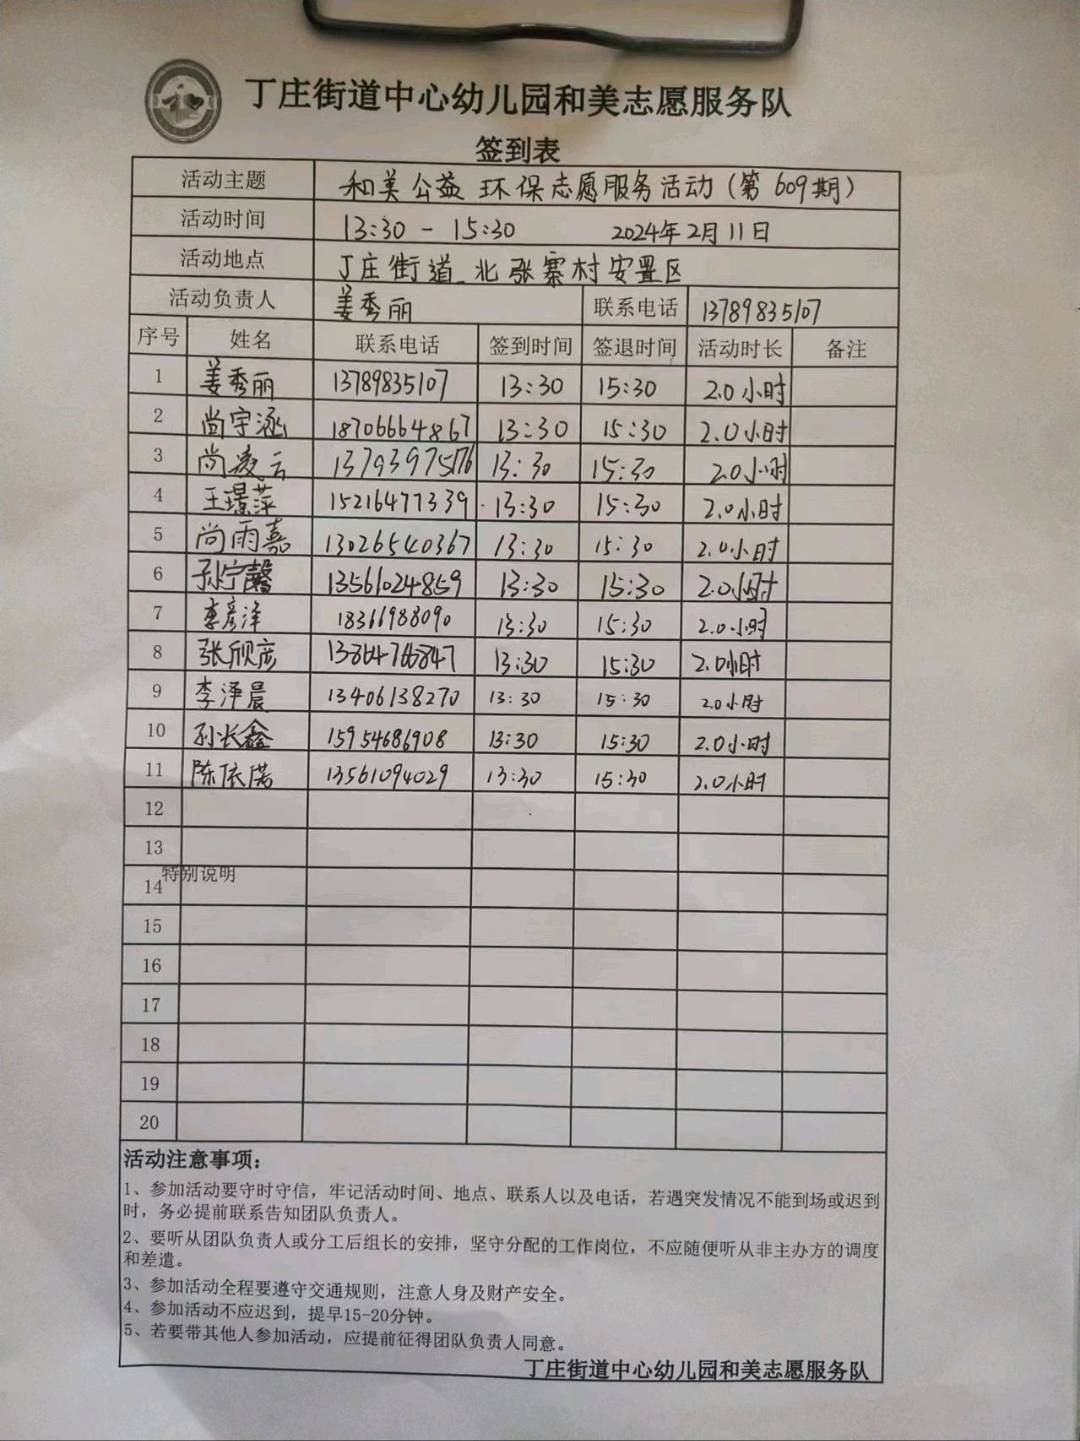 丁庄街道中心幼儿园和美志愿服务队
签到表
活动主题 和美公益 环保志愿服务活动(第609期)
活动时间 13:30 - 15:30 2024年2月11日
活动地点 丁庄街道 北张寨村安置区
活动负责人 姜秀丽 联系电话 13789835107
序号 姓名 联系电话 签到时间 签退时间 活动时长 备注
1 姜秀丽 13789835107 13:30 15:30 2.0小时
2 尚宇涵 18706664867 13:30 15:30 2.0小时
3 尚凌云 13793975176 13:30 15:30 2.0小时
4 王璟萍 15216477339 13:30 15:30 2.0小时
5 尚雨嘉 13026540367 13:30 15:30 2.0小时
6 孙宁馨 13561024859 13:30 15:30 2.0小时
7 李彦泽 18366988090 13:30 15:30 2.0小时
8 张欣彦 13864766847 13:30 15:30 2.0小时
9 李泽晨 13406138270 13:30 15:30 2.0小时
10 孙长鑫 15954686908 13:30 15:30 2.0小时
11 陈依诺 13561094029 13:30 15:30 2.0小时
12
13
特别说明
14
15
16
17
18
19
20
活动注意事项:
1、参加活动要守时守信,牢记活动时间、地点、联系人以及电话,若遇突发情况不能到场或迟到
时,务必提前联系告知团队负责人。
2、要听从团队负责人或分工后组长的安排,坚守分配的工作岗位,不应随便听从非主办方的调度
和差遣。
3、参加活动全程要遵守交通规则,注意人身及财产安全。
4、参加活动不应迟到,提早15-20分钟。
5、若要带其他人参加活动,应提前征得团队负责人同意。
丁庄街道中心幼儿园和美志愿服务队